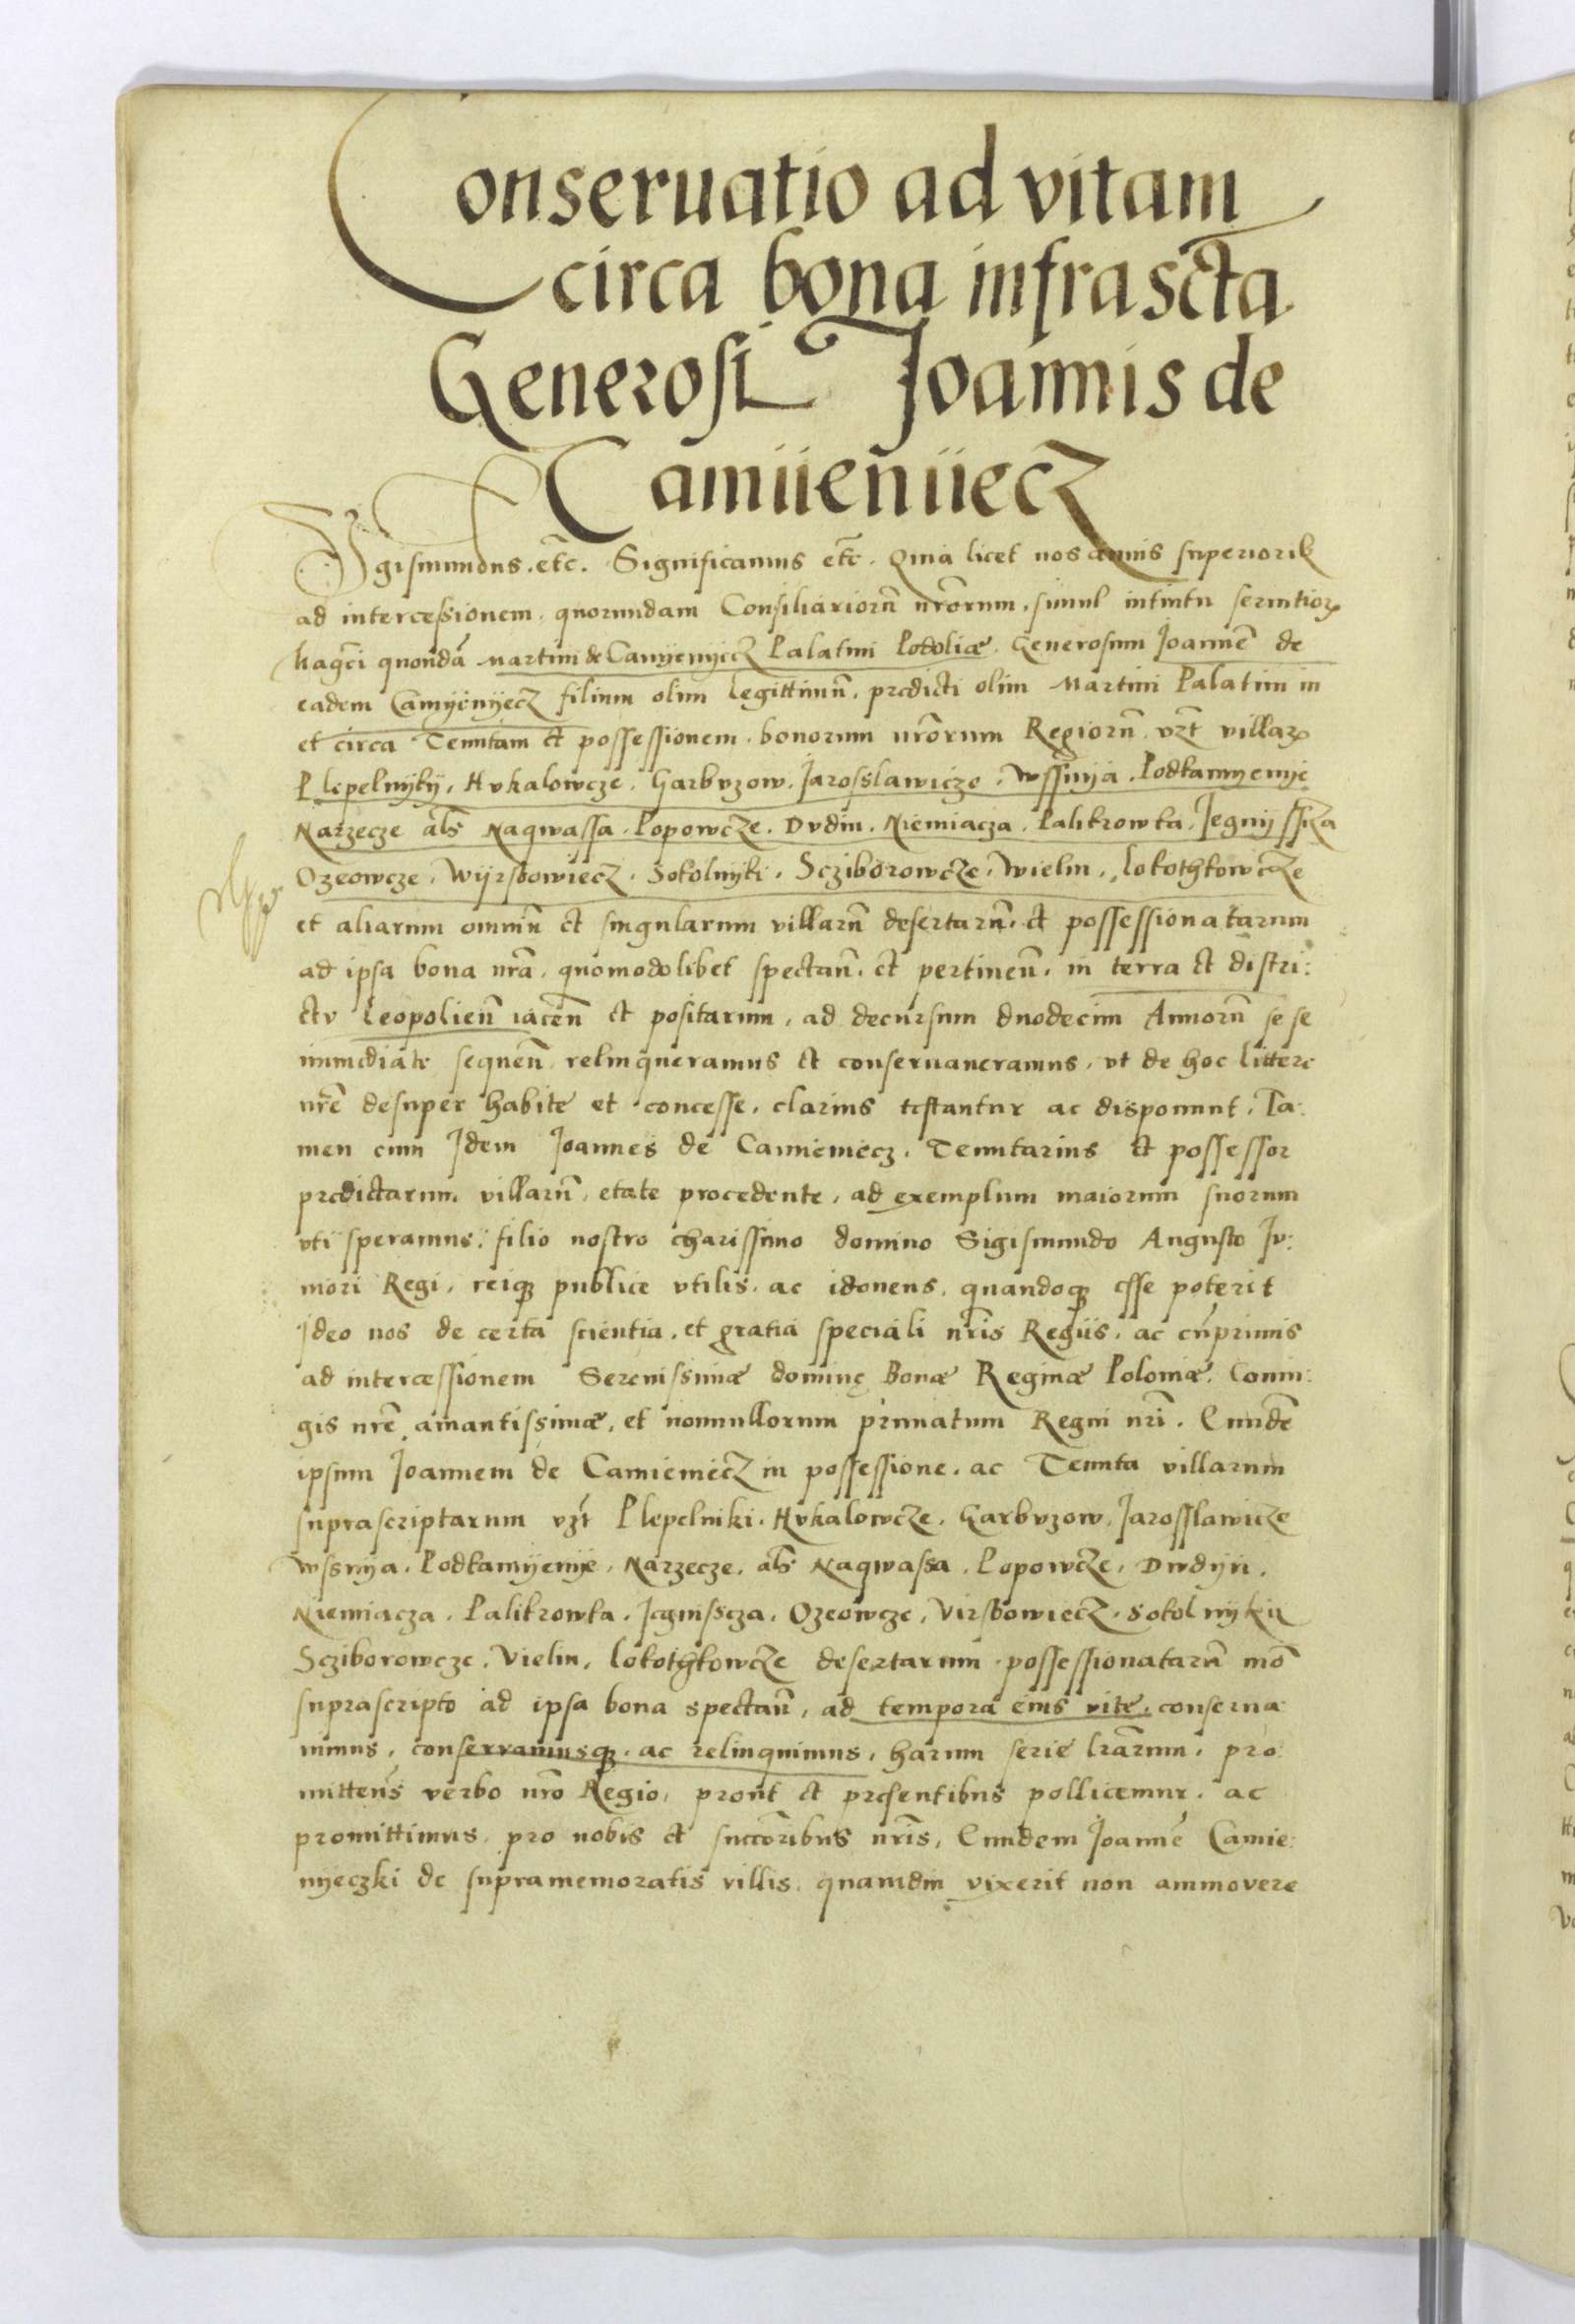 Conseruatio ad vitam
circa bona infrascta
Generosi Joannis de
Camÿenÿecz
Sigismundus. etc̃. Significamus etc̃. Quia licet nos annis superiorib
ad intercessionem quorundam Consiliariorũ nr̃orum, simul intuitu seruitioꝝ
Mag̃ci quondã Martini de Camyenyecz Palatini Podoliæ. Generosum Joannẽ de
eadem Camyenyecz filium olim legittimũ, predicti olim Martini Palatini in
et circa Tenutam et possessionem bonorum nr̃orum Regiorũ vzt villaꝝ
Plepelnyky, Hvkalowcze, Garbvzow, Jarosslawicze, Wssnya, Podkamyenye
Narzecze als̃ Naqwassa, Popowcze, Dvdin, Niemiacza, Palikrowka, Jegnysscza
Ozeowcze, Wyrsbowiecz, Sokolnyki, Scziborowcze, Wielin, Lokothkowcze
et aliarum omniũ et singularum villarũ desertarũ et possessionatarum
ad ipsa bona nr̃a, quomodolibet spectañ, et pertineñ, in terra et distri:
ctv Leopolieñ iaceñ et positarum, ad decursum duodecim Annorũ se se
immediate sequeñ relinqueramus et conseruaueramus, vt de hoc littere
nr̃e desuper habite et concesse, clarius testantur ac disponunt, Ta:
men cum Jdem Joannes de Camieniecz, Tenutarius et possessor
predictarum villarũ, etate procedente, ad exemplum maiorum suorum
vti speramus, filio nostro charissimo domino Sigismundo Augusto Ju:
niori Regi, reiqꝫ publice vtilis, ac idoneus, quandoqꝫ esse poterit
Jdeo nos de certa scientia, et gratia speciali nr̃is Regiis, ac cũprimis
ad intercessionem Serenissimæ dominę Bonæ Reginæ Poloniæ, Coniu:
gis nr̃e amantissimæ, et nonnullorum primatum Regni nr̃i. Eundẽ
ipsum Joannem de Camieniecz in possessione, ac Tenuta villarum
suprascriptarum vzt Plepelniki, Hvkalowcze, Garbvzow, Jarosslawicze
Wssnya, Podkamyenye, Narzecze, als̃ Naqwassa, Popowcze, Dwdyn,
Niemiacza, Palikrowka, Jegnisscza, Ozeowcze, Virsbowiecz, Sokolnykii
Scziborowcze, Vielin, Lokothkowcze desertarum possessionatarũ mõ
suprascripto ad ipsa bona spectañ, ad tempora eius vite, conserua
uimus, conserramusqꝫ, ac relinquimus, harum serie lr̃arum, pro:
mitteñs verbo nr̃o Regio, prout et presentibus pollicemur, ac
promittimus pro nobis et succõribus nr̃is, Eundem Joannẽ Camie:
nyeczki de supramemoratis villis, quamdiu vixerit non ammovere